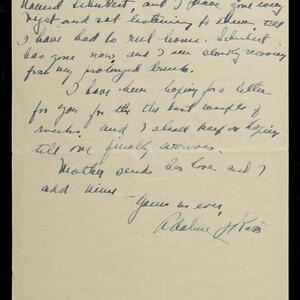 named Schubert, and I have gone every
night and sat listening to him till
I have had to reel home. Schubert
has gone now, and I am slowly recovering
from my prolonged
I have been hoping for a letter
for you for the the last couple of
weeks, and I shall keep on hoping
till one finally arrives.
Mother sends her love and I
add mine —
Yours as ever,
Adaline